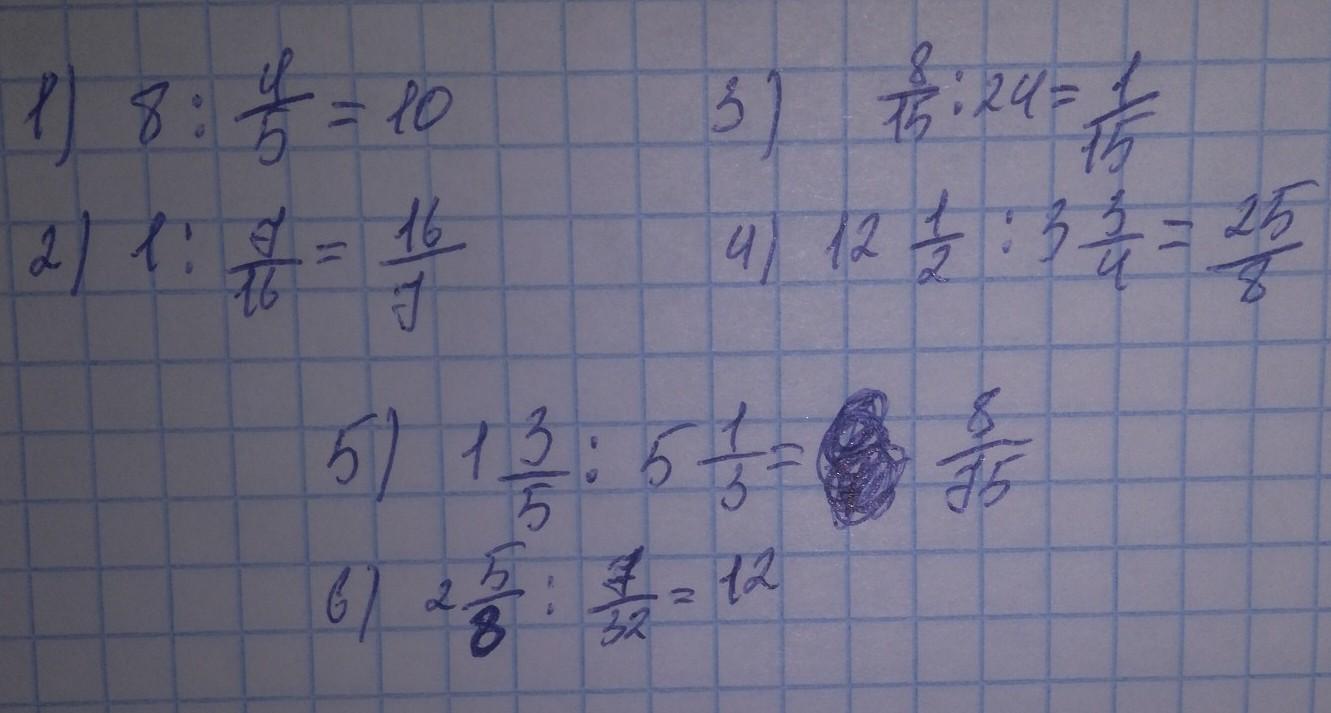 1) 8 : 4/5 = 10
3) 8/15 : 24 = 1/15
2) 1 : 7/16 = 16/7
4) 12 1/2 : 3 3/4 = 25/8
5) 1 3/5 : 5 1/3 = 8/75
6) 2 5/8 : 7/32 = 12